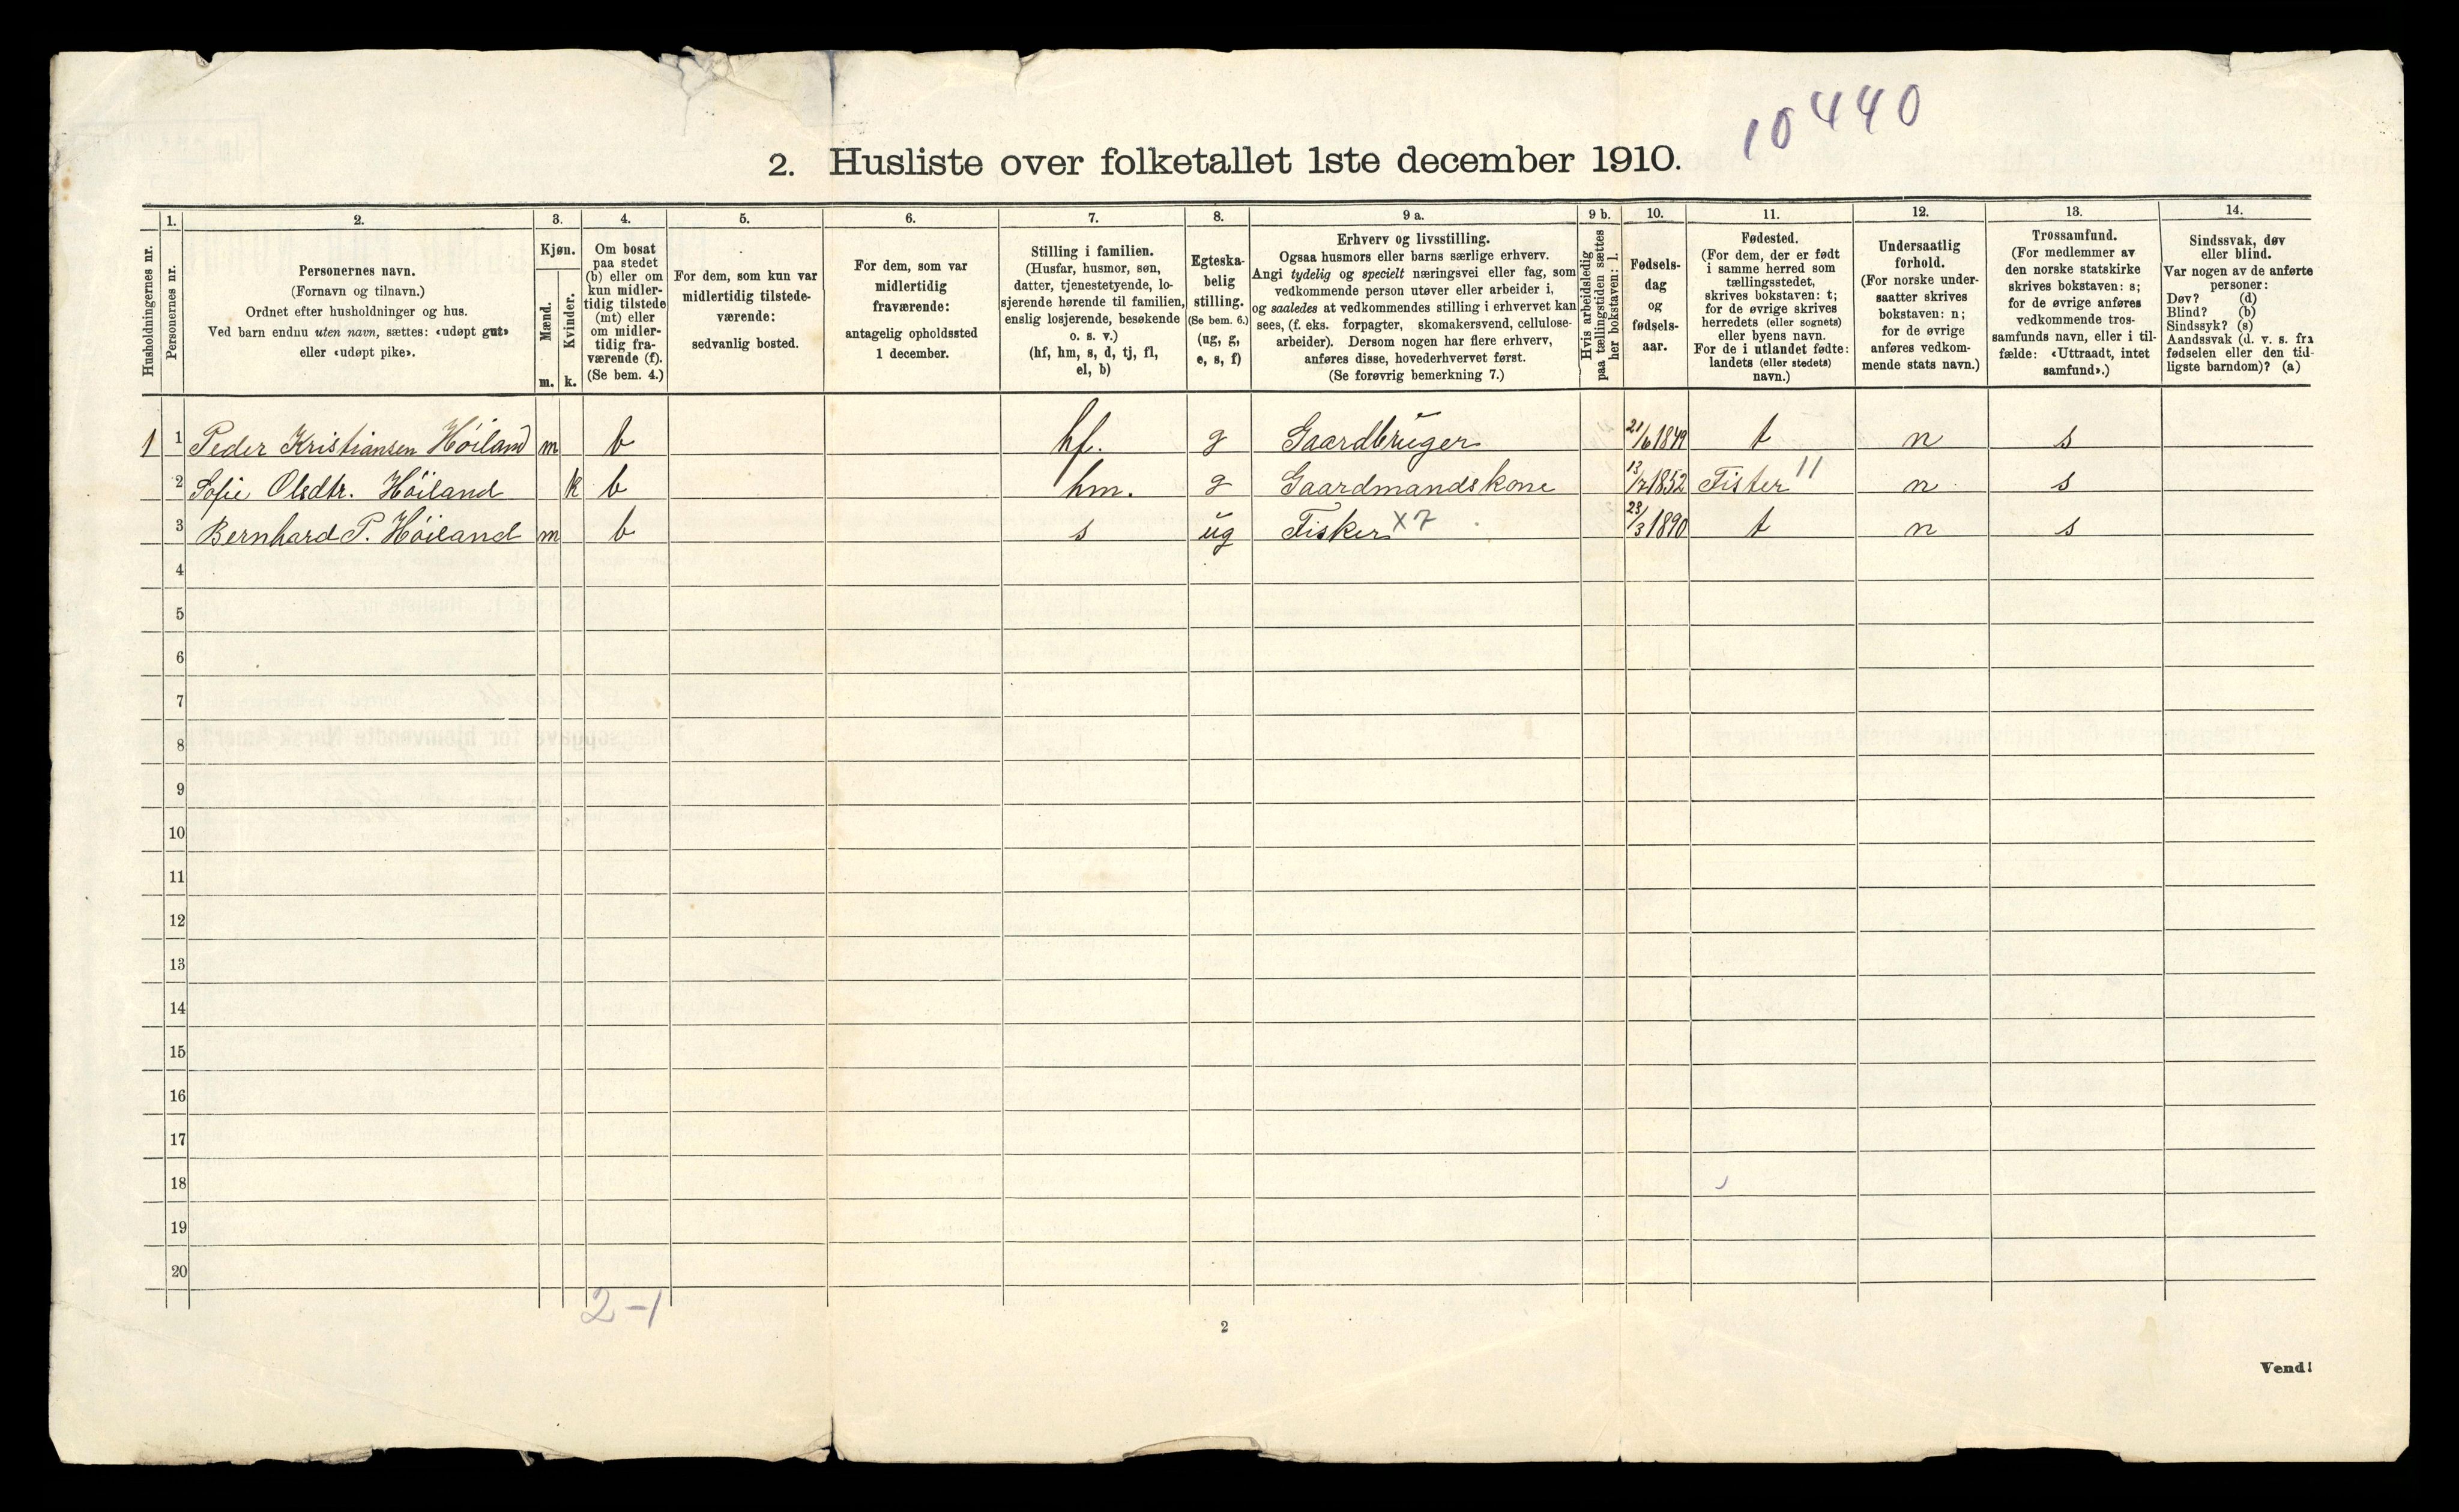 10440
2. Husliste over folketallet 1ste december 1910.
Husholdningernes nr.
1.
Personernes nr.
2.
Personernes navn.
(Fornavn og tilnavn.)
Ordnet efter husholdninger og hus.
Ved barn endnu uten navn, sættes: «udøpt gut»
eller «udøpt pike».
3.
Kjøn.
Mænd.
m.
Kvinder.
k.
4.
Om bosat
paa stedet
(b) eller om
kun midler-
tidig tilstede
(mt) eller
om midler-
tidig fra-
værende (f).
(Se bem. 4.)
5.
For dem, som kun var
midlertidig tilstede-
værende:
sedvanlig bosted.
6.
For dem, som var
midlertidig
fraværende:
antagelig opholdssted
1 december.
7.
Stilling i familien.
(Husfar, husmor, søn,
datter, tjenestetyende, lo-
sjerende hørende til familien,
enslig losjerende, besøkende
o. s. v.)
(hf, hm, s, d, tj, fl,
el, b)
8.
Egteska-
belig
stilling.
(Se bem. 6.)
(ug, g,
e, s, f)
9 a.
Erhverv og livsstilling.
Ogsaa husmors eller barns særlige erhverv.
Angi tydelig og specielt næringsvei eller fag, som
vedkommende person utøver eller arbeider i,
og saaledes at vedkommendes stilling i erhvervet kan
sees, (f. eks. forpagter, skomakersvend, cellulose-
arbeider). Dersom nogen har flere erhverv,
anføres disse, hovederhvervet først.
(Se forøvrig bemerkning 7.)
9 b.
Hvis arbeidsledig
paa tællingstiden sættes
her bokstaven: l.
10.
Fødsels-
dag
og
fødsels-
aar.
11.
Fødested.
(For dem, der er født
i samme herred som
tællingsstedet,
skrives bokstaven: t;
for de øvrige skrives
herredets (eller sognets)
eller byens navn.
For de i utlandet fødte:
landets (eller stedets)
navn.)
12.
Undersaatlig
forhold.
(For norske under-
saatter skrives
bokstaven: n;
for de øvrige
anføres vedkom-
mende stats navn.)
13.
Trossamfund.
(For medlemmer av
den norske statskirke
skrives bokstaven: s;
for de øvrige anføres
vedkommende tros-
samfunds navn, eller i til-
fælde: «Uttraadt, intet
samfund».)
14.
Sindssvak, døv
eller blind.
Var nogen av de anførte
personer:
Døv? (d)
Blind? (b)
Sindssyk? (s)
Aandssvak (d. v. s. fra
fødselen eller den tid-
ligste barndom)? (a)
1 1 Peder Kristiansen Höiland m b hf. g Gaardbruger 21/6 1849 t n s
2 Sofie Olsdtr. Höiland k b hm. g Gaardmandskone 13/7 1852 Fister 11 n s
3 Bernhard P. Höiland m b s ug Fisker x7 23/3 1890 t n s
4
5
6
7
8
9
10
11
12
13
14
15
16
17
18
19
20
2-1
2
Vend!